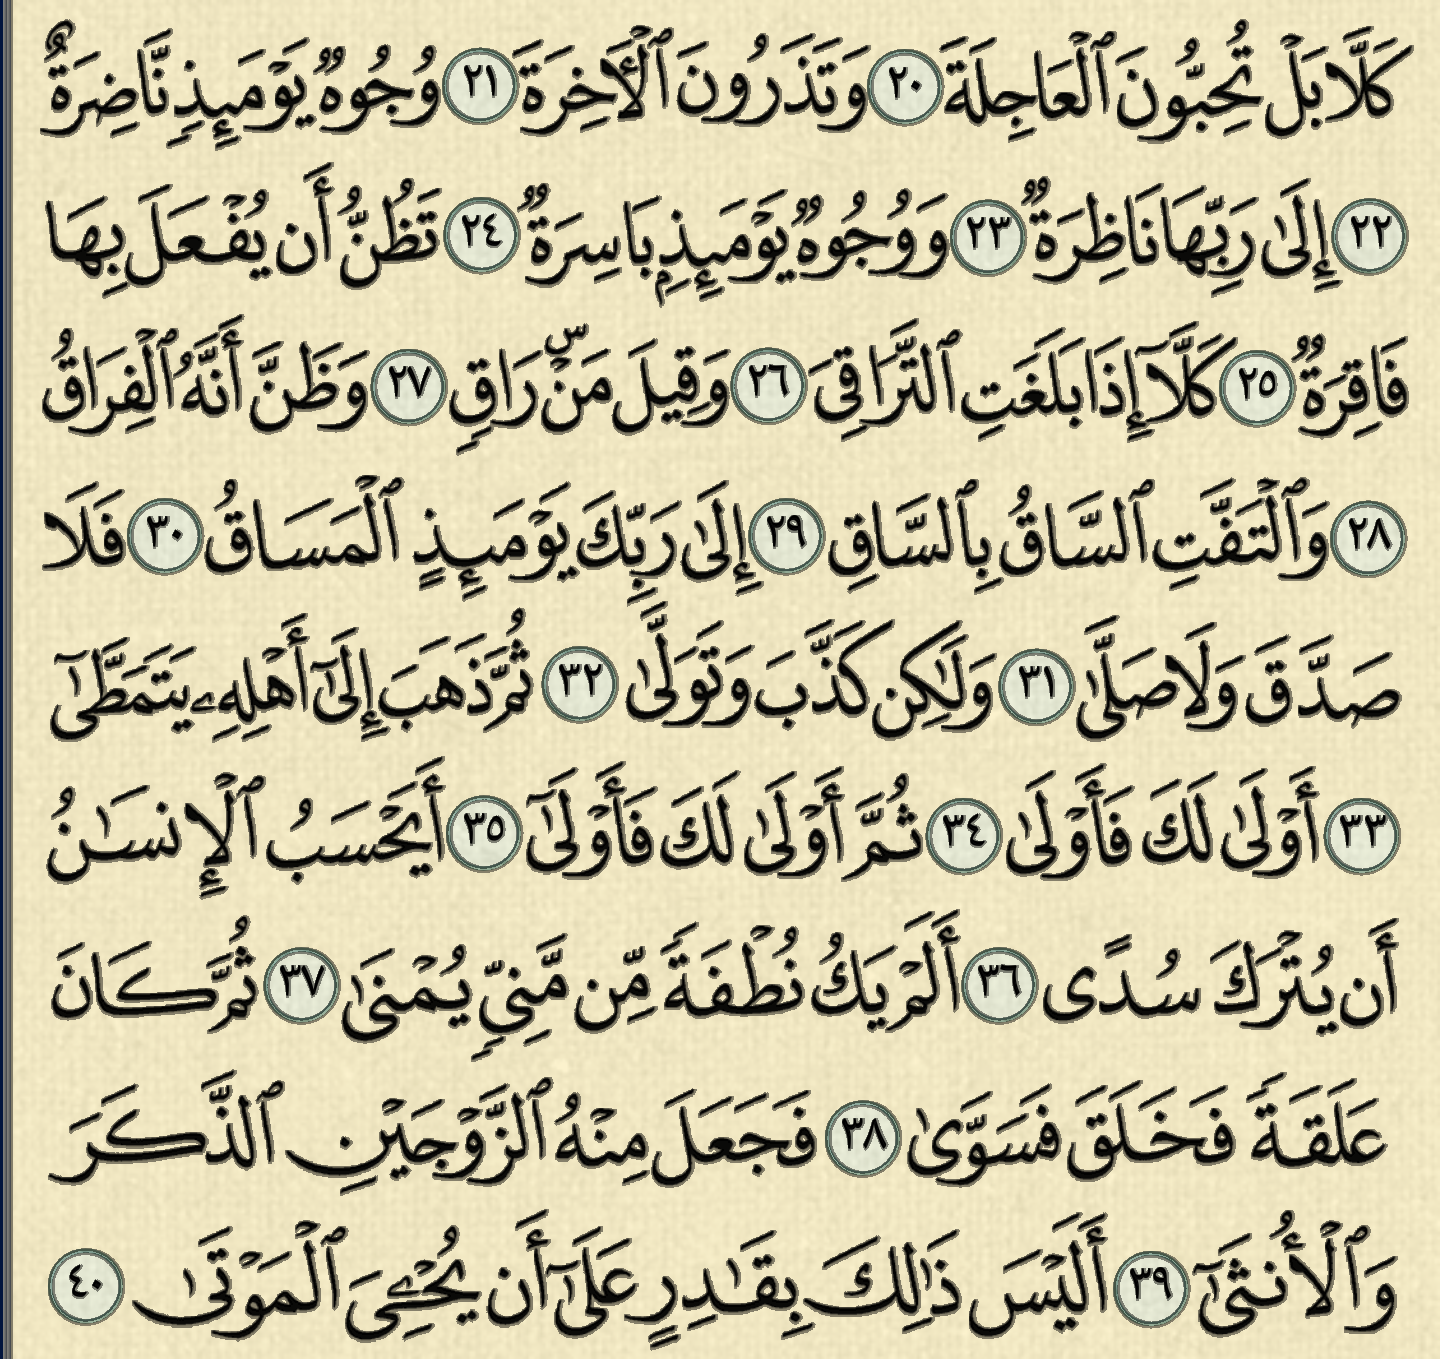 كَلَّا بَلْ تُحِبُّونَ ٱلْعَاجِلَةَ ٢٠ وَتَذَرُونَ ٱلْأَخِرَةَ ٢١ وُجُوهٌ يَوْمَئِذٍ نَّاضِرَةٌ
٢٢ إِلَىٰ رَبِّهَا نَاظِرَةٌ ٢٣ وَوُجُوهٌ يَوْمَئِذٍۭ بَاسِرَةٌ ٢٤ تَظُنُّ أَن يُفْعَلَ بِهَا
فَاقِرَةٌ ٢٥ كَلَّآ إِذَا بَلَغَتِ ٱلتَّرَاقِىَ ٢٦ وَقِيلَ مَنْۜ رَاقٍ ٢٧ وَظَنَّ أَنَّهُ ٱلْفِرَاقُ
٢٨ وَٱلْتَفَّتِ ٱلسَّاقُ بِٱلسَّاقِ ٢٩ إِلَىٰ رَبِّكَ يَوْمَئِذٍ ٱلْمَسَاقُ ٣٠ فَلَا
صَدَّقَ وَلَا صَلَّىٰ ٣١ وَلَٰكِن كَذَّبَ وَتَوَلَّىٰ ٣٢ ثُمَّ ذَهَبَ إِلَىٰٓ أَهْلِهِۦ يَتَمَطَّىٰٓ
٣٣ أَوْلَىٰ لَكَ فَأَوْلَىٰ ٣٤ ثُمَّ أَوْلَىٰ لَكَ فَأَوْلَىٰٓ ٣٥ أَيَحْسَبُ ٱلْإِنسَٰنُ
أَن يُتْرَكَ سُدًى ٣٦ أَلَمْ يَكُ نُطْفَةً مِّن مَّنِىٍّ يُمْنَىٰ ٣٧ ثُمَّ كَانَ
عَلَقَةً فَخَلَقَ فَسَوَّىٰ ٣٨ فَجَعَلَ مِنْهُ ٱلزَّوْجَيْنِ ٱلذَّكَرَ
وَٱلْأُنثَىٰٓ ٣٩ أَلَيْسَ ذَٰلِكَ بِقَٰدِرٍ عَلَىٰٓ أَن يُحْۦِىَ ٱلْمَوْتَىٰ ٤٠